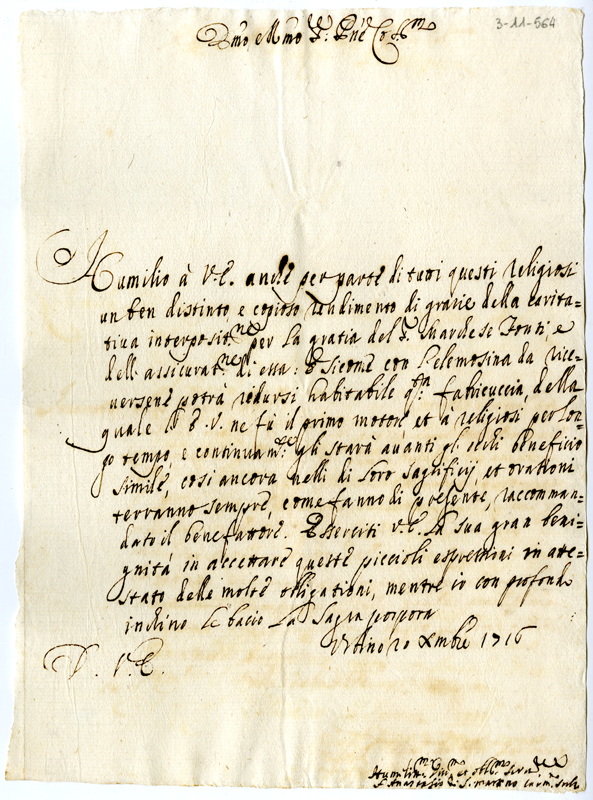 3-11-564
Em̃o Rm̃o S.r Pñe Col.mo
Humilio à V.E. anche per parte di tutti questi religiosi
un ben distinto, e copioso rendimento di gratie della carita=
tiva interposit.ne per la gratia del S.r Marchese Fonti, e
dell'assicurat.ne di essa: E sicome con l'elemosina da rice=
versene potrà ridursi habitabile q.sta fabbricuccia, della
quale l'E.V. ne fù il primo motore, et à religiosi per lon=
go tempo, e continuam.te gli starà avanti gl'occhi beneficio
simile, così ancora nelli di loro sagrificij, et orationi
terranno sempre, come fanno di presente, raccomman=
dato il benefattore. Esserciti V.E. la sua gran beni=
gnità in accettare queste piccioli espressioni in atte=
stato delle molte obligationi, mentre io con profondo
inchino le bacio la Sagra porpora
Urbino 20 Xmbre 1716
D. V.E.
Humiliss.mo et obl.mo Ser.re
F. di S. Martino Carm. Scalzo